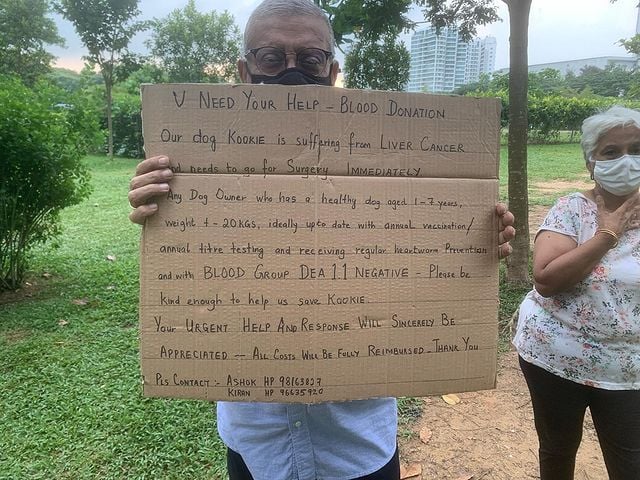 V NEED YOUR HELP - BLOOD DONATION
OUR dog KOOKIE is suffering from LIVER CANCER
and needs to go for SURGERY IMMEDIATELY
Any DOG OWNER who has a healthy dog aged 1-7 years,
weight + - 20 KGS, ideally upto date with annual vaccination/
annual titre testing and receiving regular heartworm Prevention
and with BLOOD GROUP DEA 1.1 NEGATIVE - Please be
kind enough to help us save KOOKIE.
YOUR URGENT HELP AND RESPONSE WILL SINCERELY BE
APPRECIATED -- ALL COSTS WILL BE FULLY REIMBURSED - THANK YOU
PLS CONTACT :- ASHOK HP 98163827
KIRAN HP 96635920